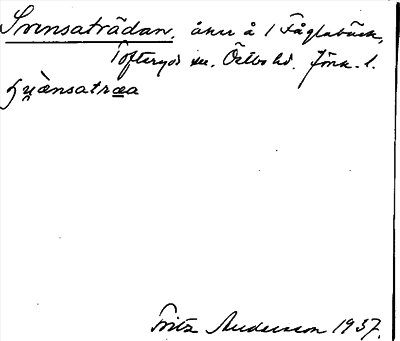 Svensaträdan, åker å 1 Fåglabäck,
Tofteryds sn. Östbo hd. Jönk. l.
su̯ènsatræa
Fritz Andersson 1937.